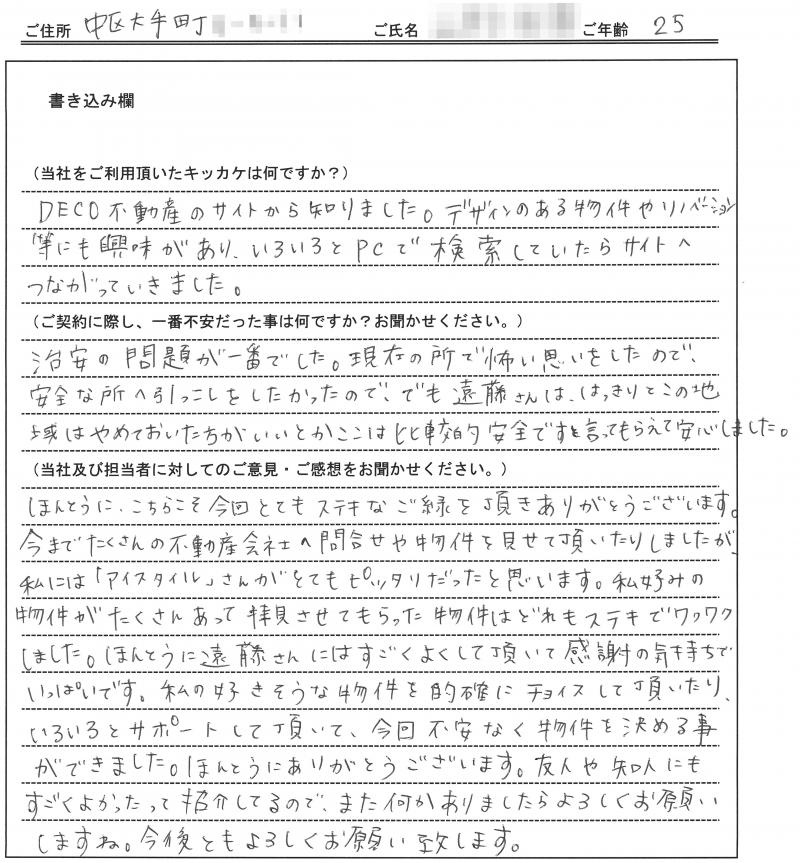 ご住所 中区大手町 ご氏名 ご年齢 25
書き込み欄
(当社をご利用頂いたキッカケは何ですか?)
DECO不動産のサイトから知りました。デザインのある物件やリノベーション
等にも興味があり、いろいろとPCで検索していたらサイトへ
つながっていきました。
(ご契約に際し、一番不安だった事は何ですか?お聞かせください。)
治安の問題が一番でした。現在の所で怖い思いをしたので、
安全な所へ引っこしをしたかったので、でも遠藤さんは、はっきりとこの地
域はやめておいたちがいいとかここは比較的安全ですと言ってもらえて安心しました。
(当社及び担当者に対してのご意見・ご感想をお聞かせください。)
ほんとうに、こちらこそ今回とてもステキなご縁を頂きありがとうございます。
今までたくさんの不動産会社へ問合せや物件を見せて頂いたりしましたが、
私には「アイスタイル」さんがとてもピッタリだったと思います。私好みの
物件がたくさんあって拝見させてもらった物件はどれもステキでワクワク
しました。ほんとうに遠藤さんにはすごくよくして頂いて感謝の気持ちで
いっぱいです。私の好きそうな物件を的確にチョイスして頂いたり、
いろいろとサポートして頂いて、今回不安なく物件を決める事
ができました。ほんとうにありがとうございます。友人や知人にも
すごくよかったって紹介してるので、また何かありましたらよろしくお願い
しますね。今後ともよろしくお願い致します。